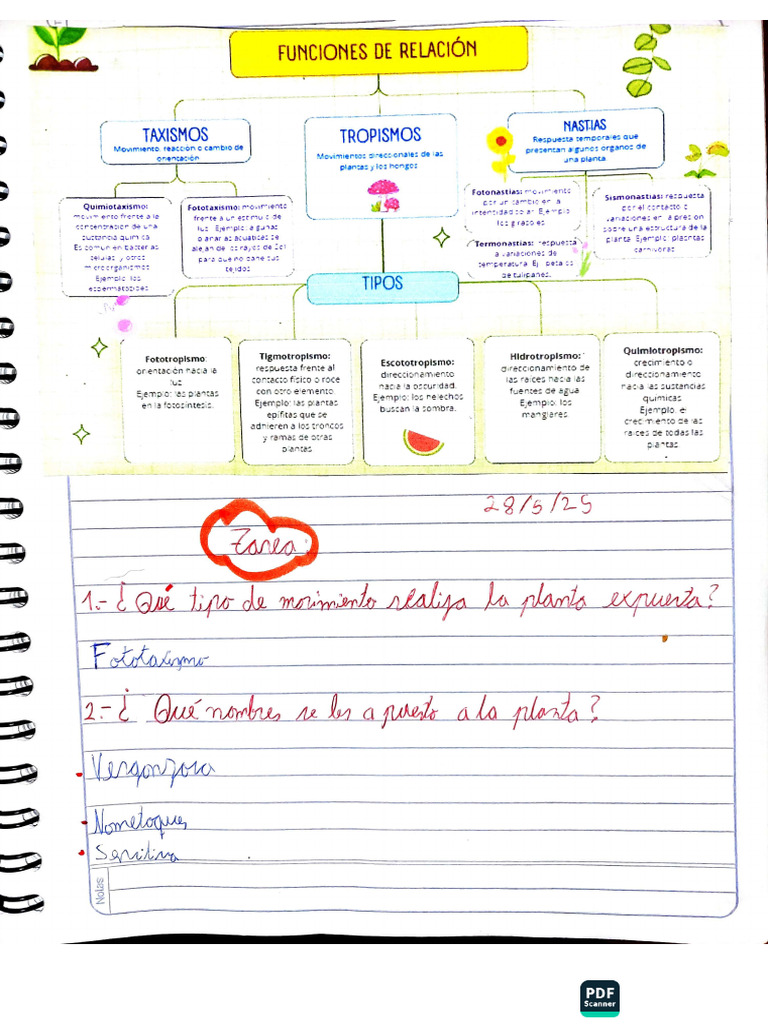 FUNCIONES DE RELACIÓN
TAXISMOS
Movimiento, reacción o cambio de
orientación
TROPISMOS
Movimientos direccionales de las
plantas y los hongos
NASTIAS
Respuesta temporales que
presentan algunos órganos de
una planta
Quimiotaxismo:
movimiento frente a la
concentración de una
sustancia química.
Es común en bacterias,
células y otros
microorganismos.
Ejemplo: los
espermatozoides
Fototaxismo: movimiento
frente a un estímulo de
luz. Ejemplo: algunas
planarias acuáticas se
alejan de los rayos de Sol
para que no dañe sus
tejidos
Fotonastias: movimiento
por un cambio en la
intensidad solar. Ejemplo:
los girasoles
Termonastias: respuesta
a variaciones de
temperatura. Ej: petalos
de tulipanes.
Sismonastias: respuesta
por el contacto o
variaciones en la presión
sobre una estructura de la
planta. Ejemplo: plantas
carnívoras
TIPOS
Fototropismo:
orientación hacia la
luz
Ejemplo: las plantas
en la fotosíntesis.
Tigmotropismo:
respuesta frente al
contacto físico o roce
con otro elemento.
Ejemplo: las plantas
epífitas que se
adhieren a los troncos
y ramas de otras
plantas
Escototropismo:
direccionamiento
hacia la oscuridad.
Ejemplo: los helechos
buscan la sombra.
Hidrotropismo:
direccionamiento de
las raíces hacia las
fuentes de agua
Ejemplo: los
manglares.
Quimiotropismo:
crecimiento o
direccionamiento
hacia las sustancias
químicas
Ejemplo: el
crecimiento de las
raíces de todas las
plantas
28/5/25
Tarea:
1.- ¿Qué tipo de movimiento realiza la planta expuesta?
Fototaxismo
2.- ¿Qué nombres se les a puesto a la planta?
Vergonzosa
Nometoques
Sensitiva
Notas
PDF
Scanner